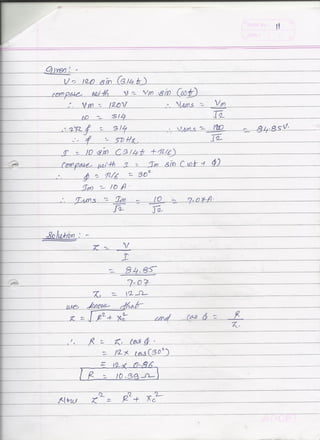 11
Given : -
V = 120 sin (314t)
compare with V = Vm sin (ωt)
∴ Vm = 120V ∴ Vrms = Vm/√2
ω = 314
∴ 2π f = 314 ∴ Vrms = 120/√2 = 84.85V.
∴ f = 50Hz.
I = 10 sin (314t + π/6)
Compare with I = Im sin (ωt + ϕ)
∴ ϕ = π/6 = 30°
Im = 10 A
∴ Irms = Im/√2 = 10/√2 = 7.07A
Solution : -
Z = V/I
= 84.85/7.07
Z = 12 Ω
we know that
Z = √R² + Xc² and cos ϕ = R/Z.
∴ R = Z. cos ϕ.
= 12 x cos(30°)
= 12 x 0.86
R = 10.39 Ω
Now Z² = R² + Xc²